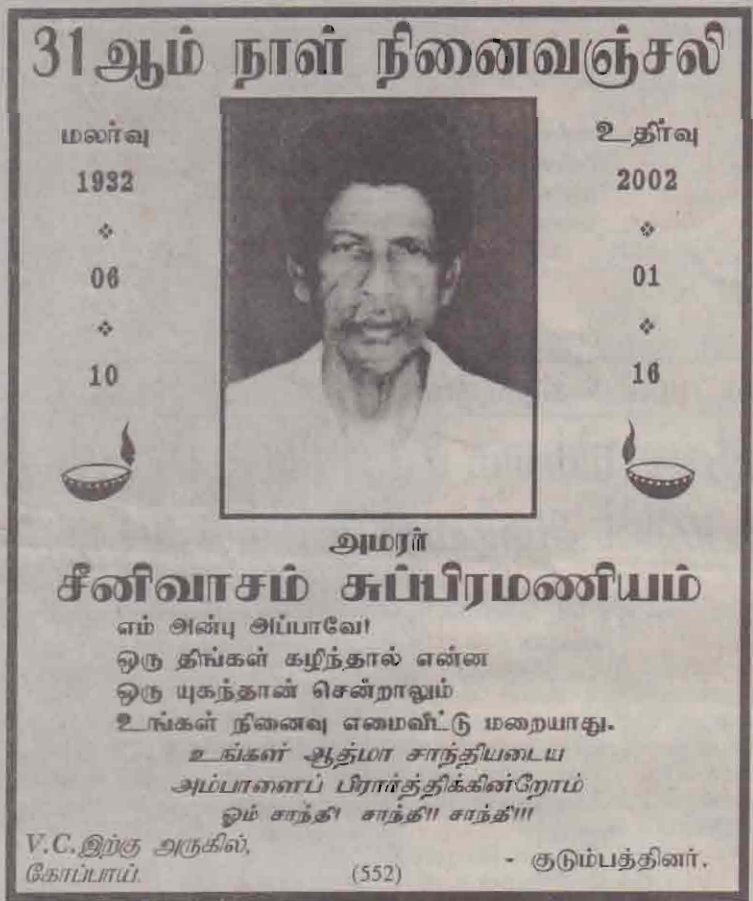 31ஆம் நாள் நினைவஞ்சலி
மலர்வு
1932
06
10
உதிர்வு
2002
01
16
அமரர்
சீனிவாசம் சுப்பிரமணியம்
எம் அன்பு அப்பாவே!
ஒரு திங்கள் கழிந்தால் என்ன
ஒரு யுகந்தான் சென்றாலும்
உங்கள் நினைவு எமைவிட்டு மறையாது.
உங்கள் ஆத்மா சாந்தியடைய
அம்பாளைப் பிரார்த்திக்கின்றோம்
ஓம் சாந்தி! சாந்தி!! சாந்தி!!!
V.C.இற்கு அருகில்,
கோப்பாய்.
(552)
- குடும்பத்தினர்.